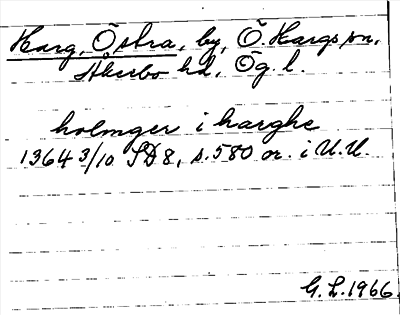 Harg, Östra, by, Ö. Hargs sn,
Åkerbo hd, Ög. l.
holmger i harghe
1364 3/10 SD 8, s. 580 or. i U.U.
G. L. 1966.